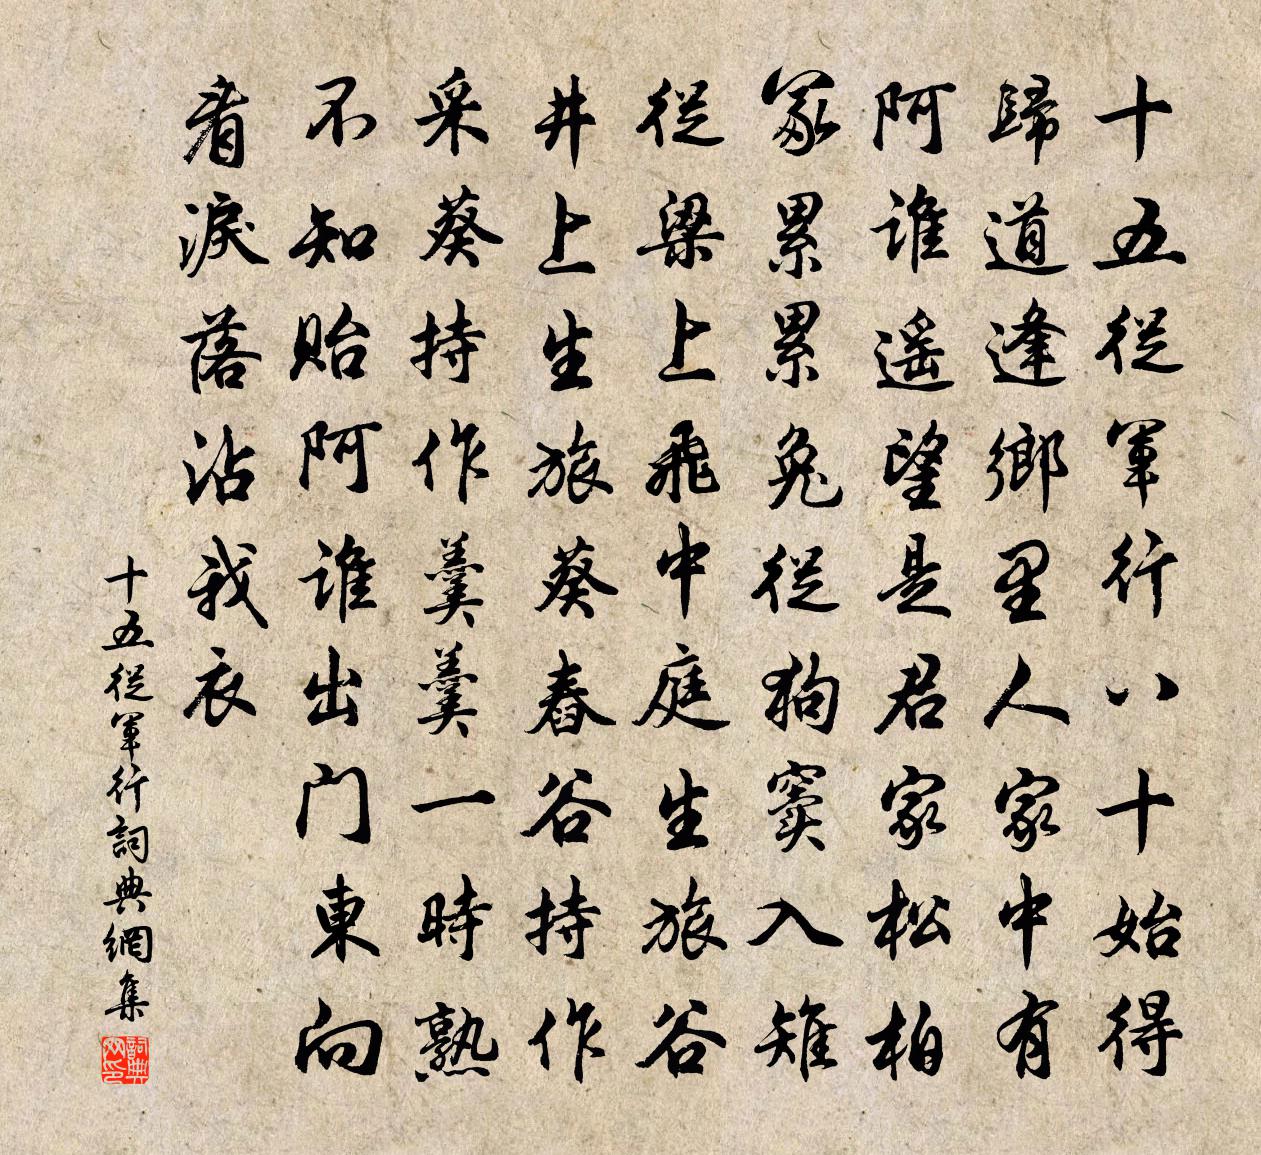 十五從軍行八十始得
歸道逢鄉里人家中有
阿誰遥望是君家松柏
冢累累兔從狗竇入雉
從梁上飛中庭生旅谷
井上生旅葵舂谷持作
采葵持作羹羹一時熟
不知貽阿誰出門東向
看淚落沾我衣
十五從軍行詞典網集
詞典网印